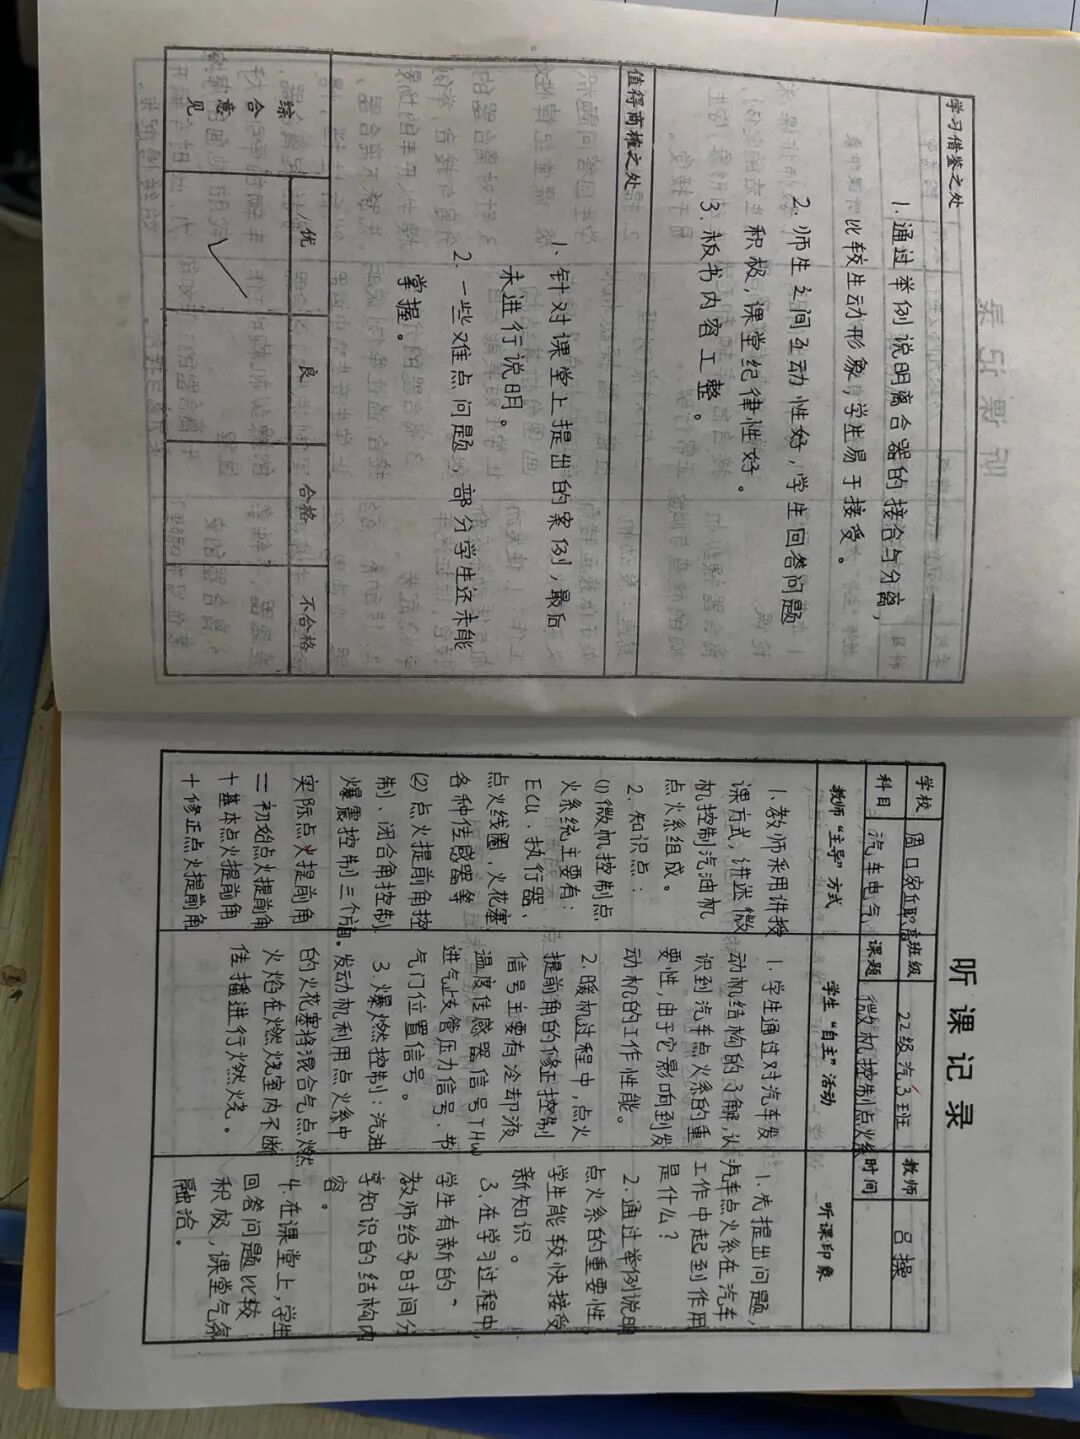 学习借鉴之处
1.通过举例说明离合器的接合与分离,
比较生动形象,学生易于接受。
2.师生之间互动性好,学生回答问题
积极,课堂纪律性好。
3.板书内容工整。
值得商榷之处
1、针对课堂上提出的案例,最后
未进行说明。
2.一些难点问题,部分学生还未能
掌握。
综合意见
优 良 合格 不合格
✓
听课记录
学校 周口 职高 班级 22级汽3班 教师 吕操
科目 汽车电气 课题 微机控制点火系 时间
教师“主导”方式
1.教师采用讲授
课方式,讲述微
机控制汽油机
点火系组成。
2.知识点:
(1)微机控制点
火系统主要有:
ECU、执行器、
点火线圈、火花塞
各种传感器等
(2)点火提前角控
制、闭合角控制
爆震控制三个方面。
实际点火提前角
=初始点火提前角
+基本点火提前角
+修正点火提前角
学生“自主”活动
1.学生通过对汽车发
动机结构的了解,认
识到汽车点火系的重
要性,由于它影响到发
动机的工作性能。
2.暖机过程中,点火
提前角的修正控制
信号主要有冷却液
温度传感器信号THW
进气歧管压力信号、节
气门位置信号。
3.爆燃控制:汽油
发动机利用点火系中
的火花塞将混合气点燃
火焰在燃烧室内不断
传播进行燃烧。
听课印象
1.先提出问题,
汽车点火系在汽车
工作中起到作用
是什么?
2.通过举例说明
点火系的重要性,
学生能较快接受
新知识。
3.在学习过程中,
学生有新的
教师给予时间分
享知识的结构内
容。
4.在课堂上,学生
回答问题比较
积极,课堂气氛
融洽。